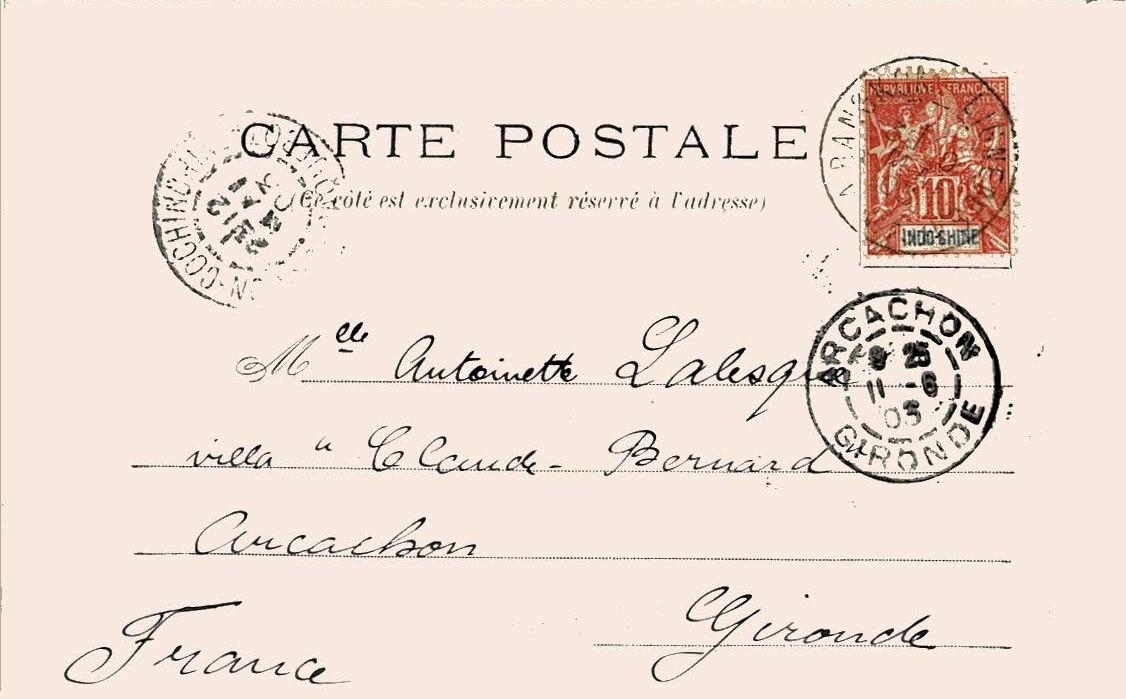 CARTE POSTALE
(Ce côté est exclusivement réservé à l'adresse)
REPVBLIQVE FRANÇAISE
COLONIES
10
INDO-CHINE
COCHINCHINE
ARCACHON
8 25
11 -6
03
GIRONDE
Mlle Antoinette
villa "Claude-Bernard"
Arcachon
Gironde
France